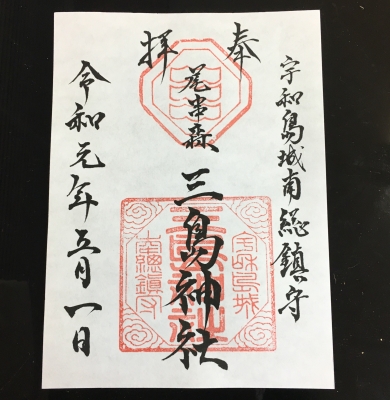 奉拝
宇和島城南総鎮守
尾串森
三島神社
令和元年五月一日
三島神社
宇和島城
南總鎮守